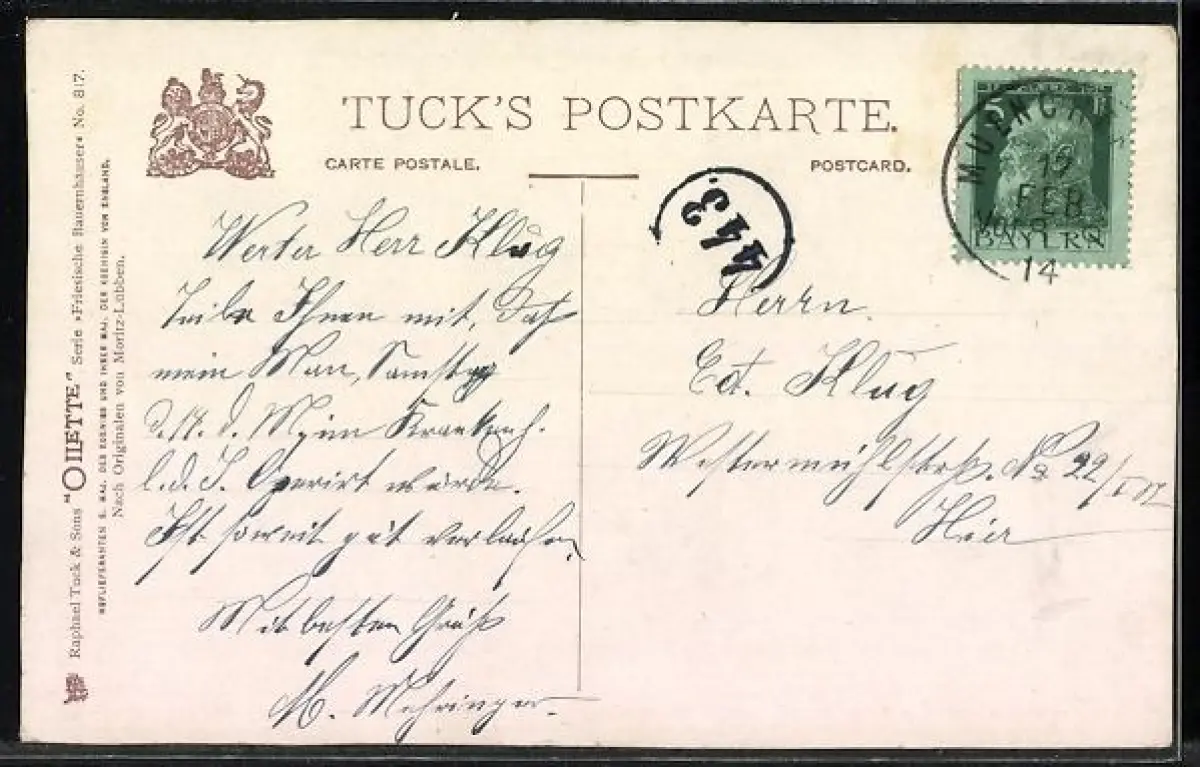 TUCK'S POSTKARTE.
CARTE POSTALE.
POSTCARD.
Raphael Tuck & Sons "OILETTE" Serie »Friesische Bauernhäuser« No. 817.
HOFLIEFERANTEN S. MAJ. DES KOENIGS UND IHRER MAJ. DER KOENIGIN VON ENGLAND.
Nach Originalen von Moritz-Lübben.
443
5
BAYERN
MUENCHEN
12
FEB
14
Werter Herr Klug
Teile Ihnen mit, daß
mein Man, Samstag
im
Operirt wurde.
Ist soweit gut verlaufen
Mit besten Gruß
M. Mehringer.
Herrn
Ed. Klug
Westermühlstraß. No 22/
Hier